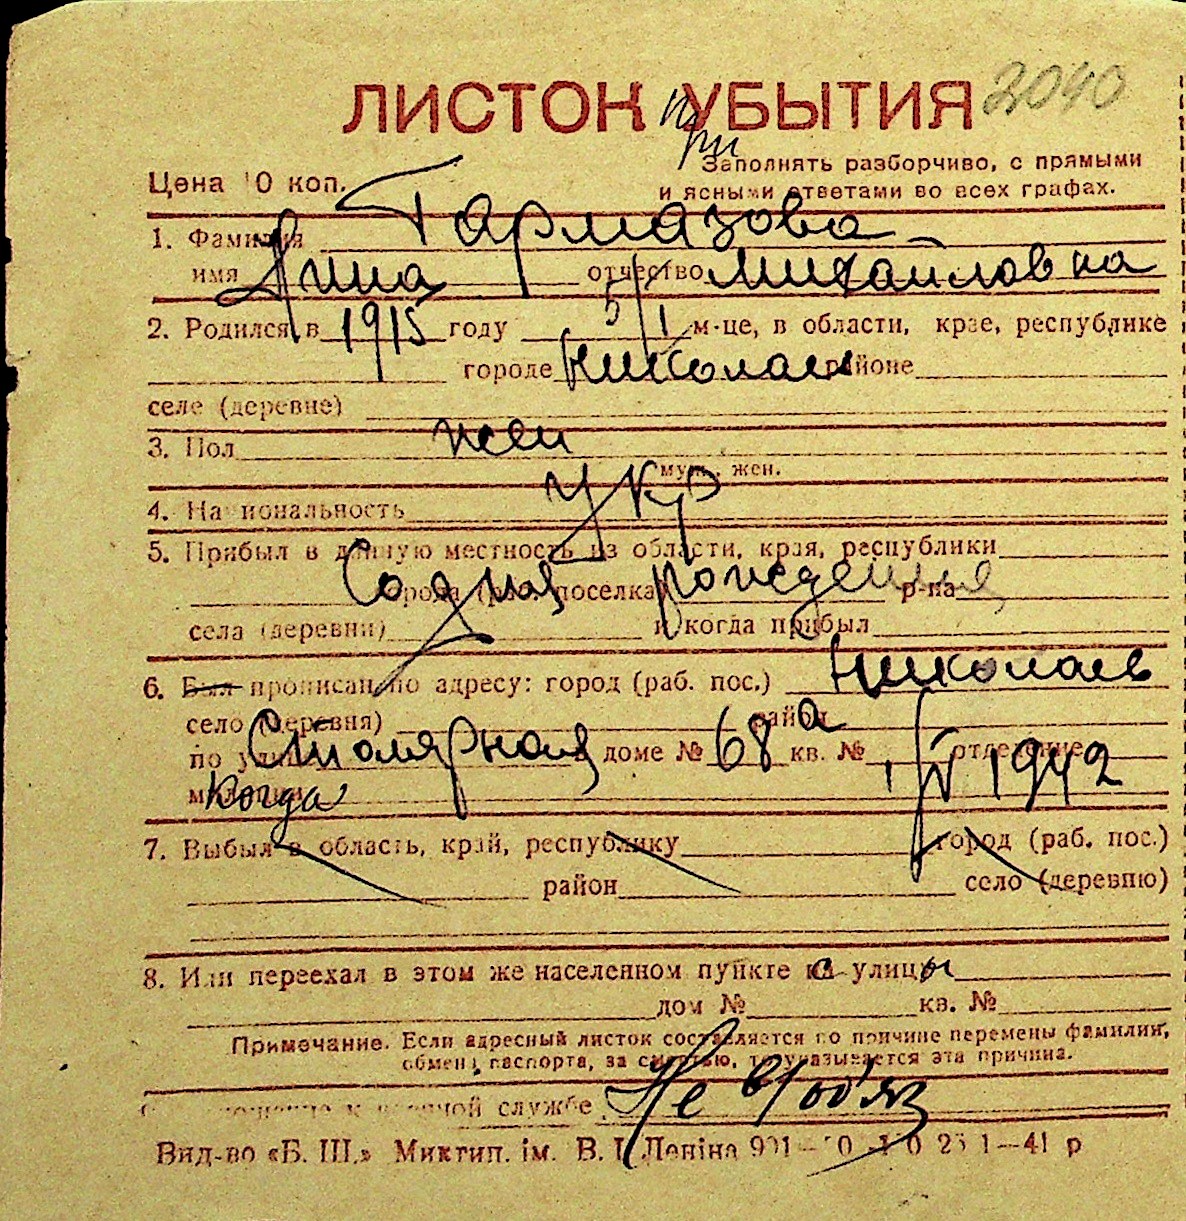 ЛИСТОК при УБЫТИЯ 2040
Цена 10 коп. Заполнять разборчиво, с прямыми
и ясными ответами во всех графах.
1. Фамилия Гармазова
имя Анна отчество Михайловна
2. Родился в 1915 году 5/I м-це, в области, крае, республике
городе Николаев районе
селе (деревне)
3. Пол жен
муж., жен.
4. Национальность укр
5. Прибыл в данную местность из области, края, республики
города (раб. поселка) р-на
Со дня рождения
села (деревни) и когда прибыл
6. Был прописан по адресу: город (раб. пос.) Николаев
село (деревня) район
по улице Столярная доме № 68а кв. № отделение
милиции Когда 1942
7. Выбыл в область, край, республику город (раб. пос.)
район село (деревню)
8. Или переехал в этом же населенном пункте с улицы
дом № кв. №
Примечание. Если адресный листок составляется по причине перемены фамилии,
обмена паспорта, за смертью, то указывается эта причина.
к военной службе Не в/об'яз
Вид-во «Б. Ш.» Миктип. ім. В. І. Леніна